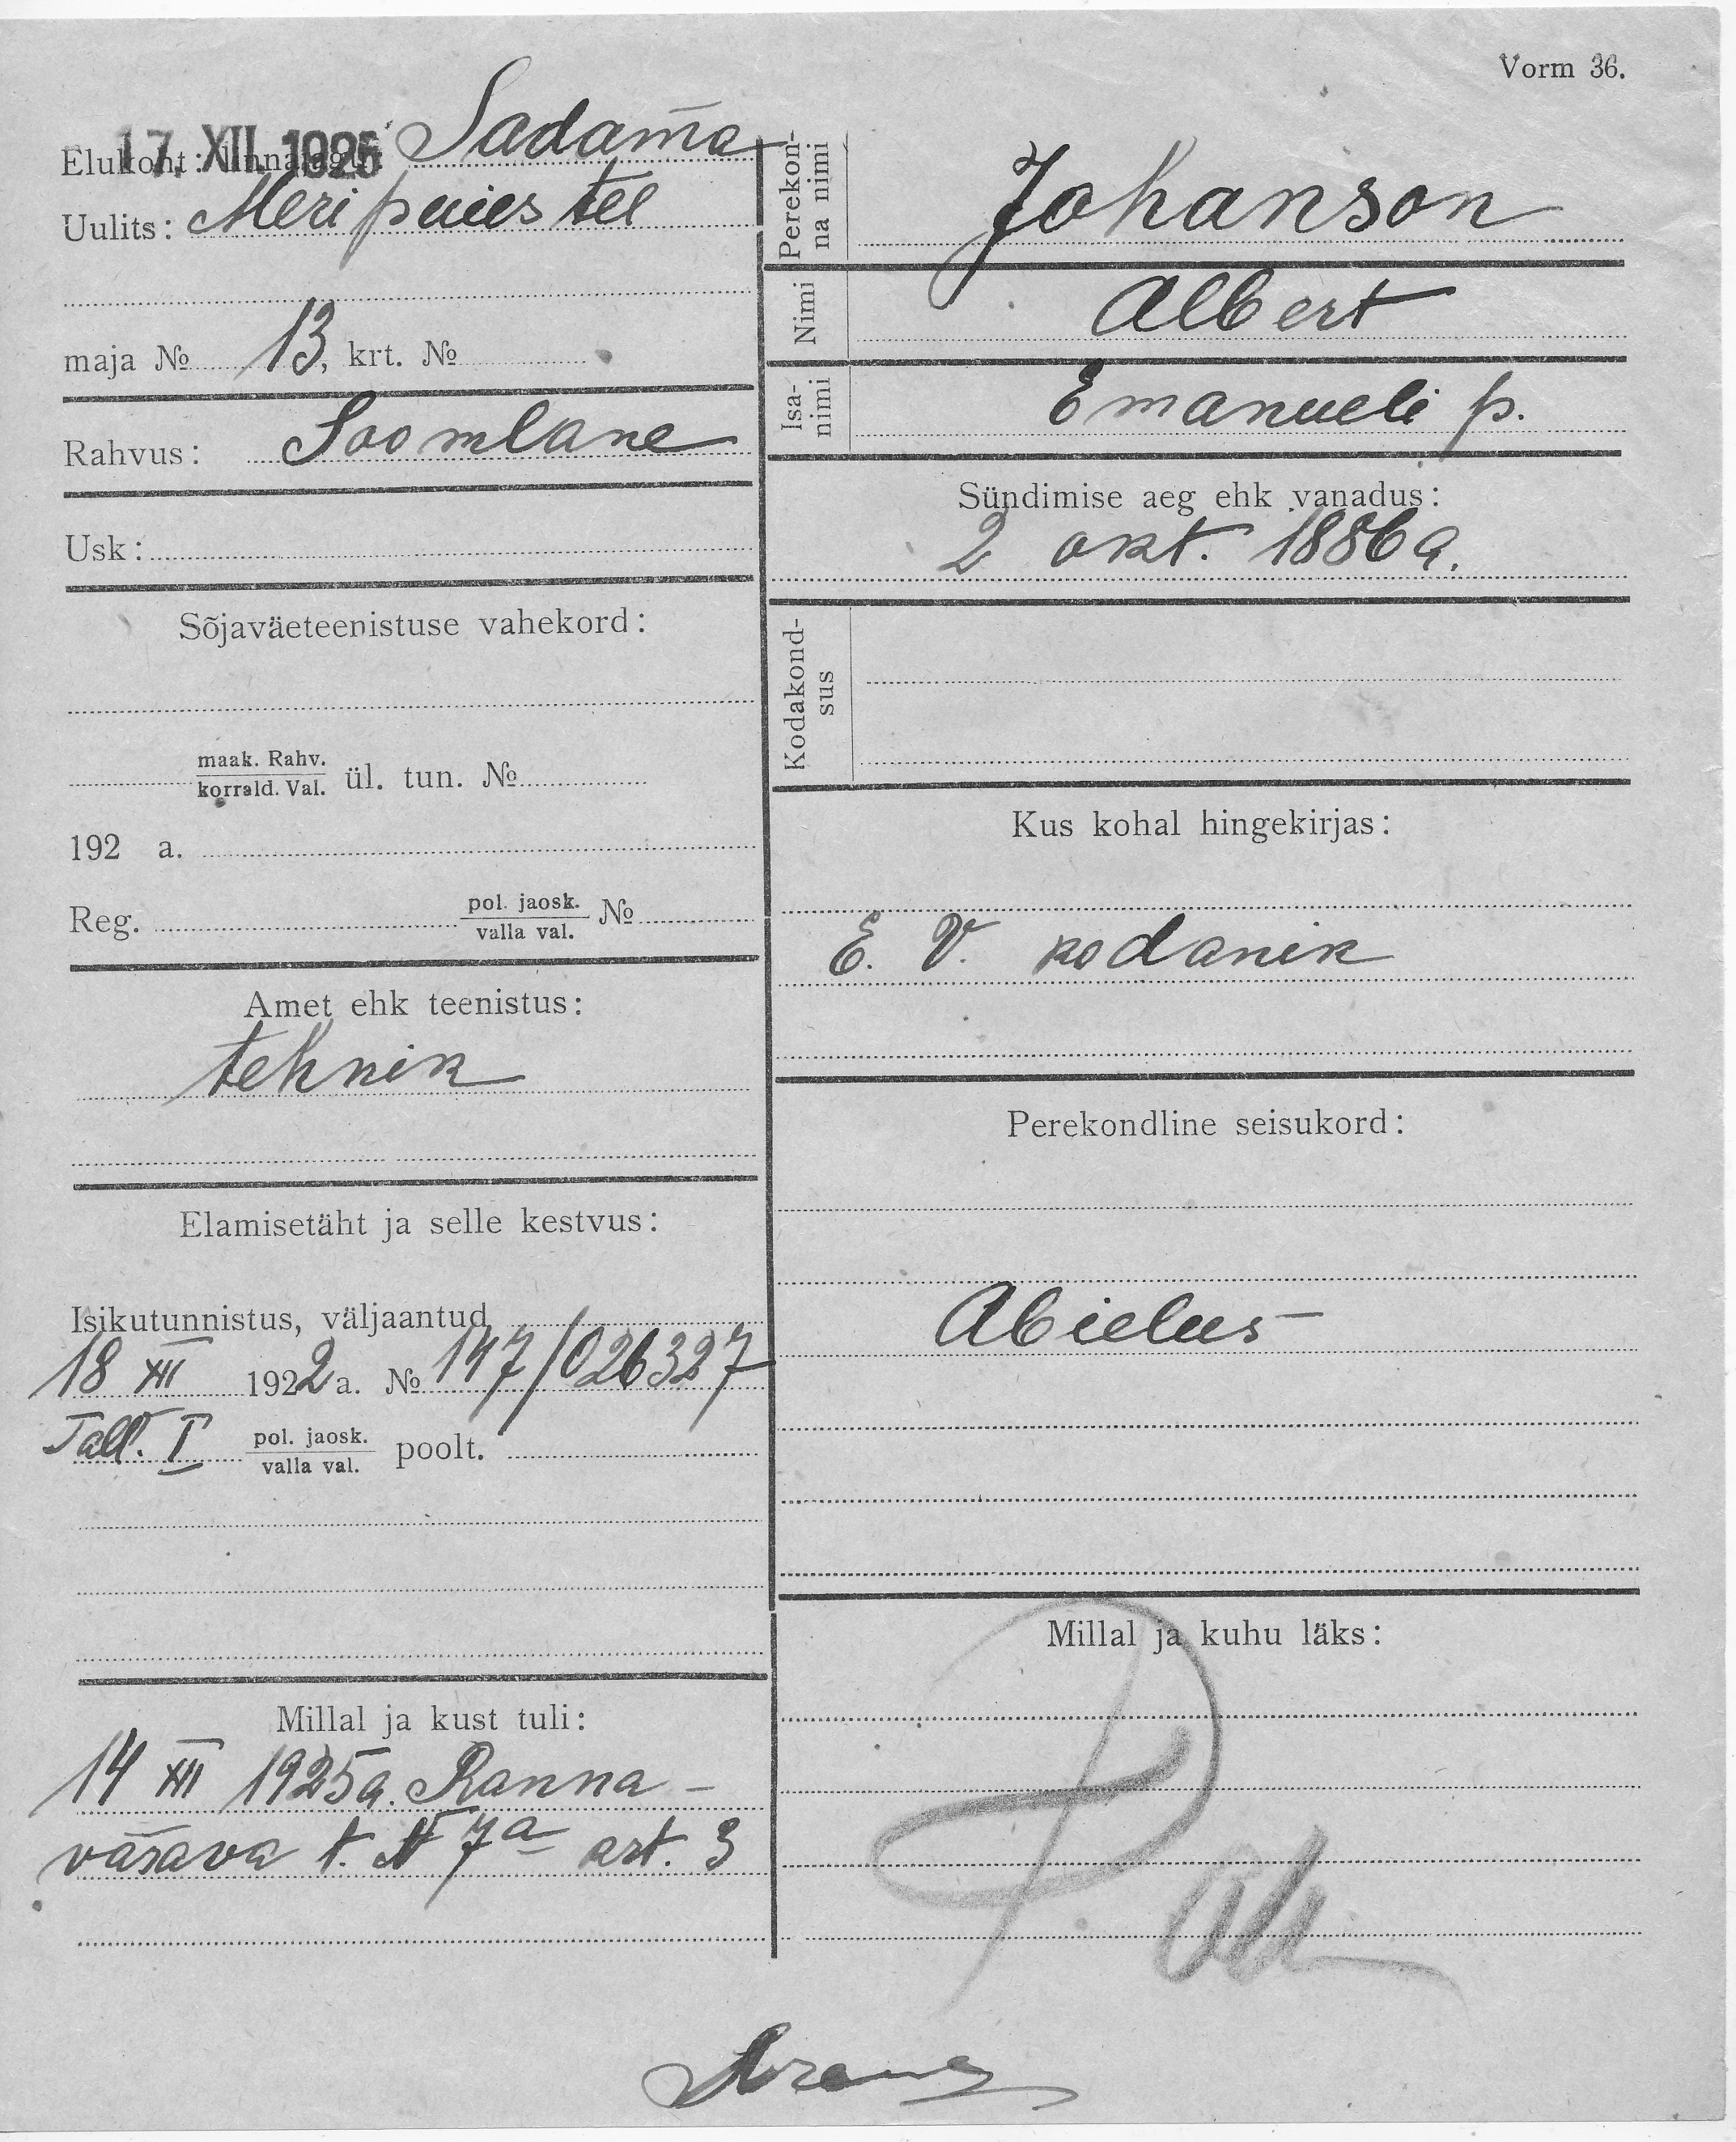 Vorm 36.
17. XII. 1925
Elukoht: linnajagu: Sadama
Uulits: Meripuiestee
maja № 13, krt. №
Rahvus: Soomlane
Usk:
Sõjaväeteenistuse vahekord:
maak. Rahv.
korrald. Val. ül. tun. №
192 a.
Reg. pol. jaosk. №
valla val.
Amet ehk teenistus:
tehnik
Elamisetäht ja selle kestvus:
Isikutunnistus, väljaantud
18 XII 1922 a. № 147/026327
Tall. I pol. jaosk. poolt.
valla val.
Millal ja kust tuli:
14 XII 1925 a. Ranna-
värava t. № 7a krt. 3
Perekon-
na nimi
Johanson
Nimi
Albert
Isa-
nimi
Emanueli p.
Sündimise aeg ehk vanadus:
2 okt. 1886 a.
Kodakond-
sus
Kus kohal hingekirjas:
E. V. kodanik
Perekondline seisukord:
Abielus
Millal ja kuhu läks: